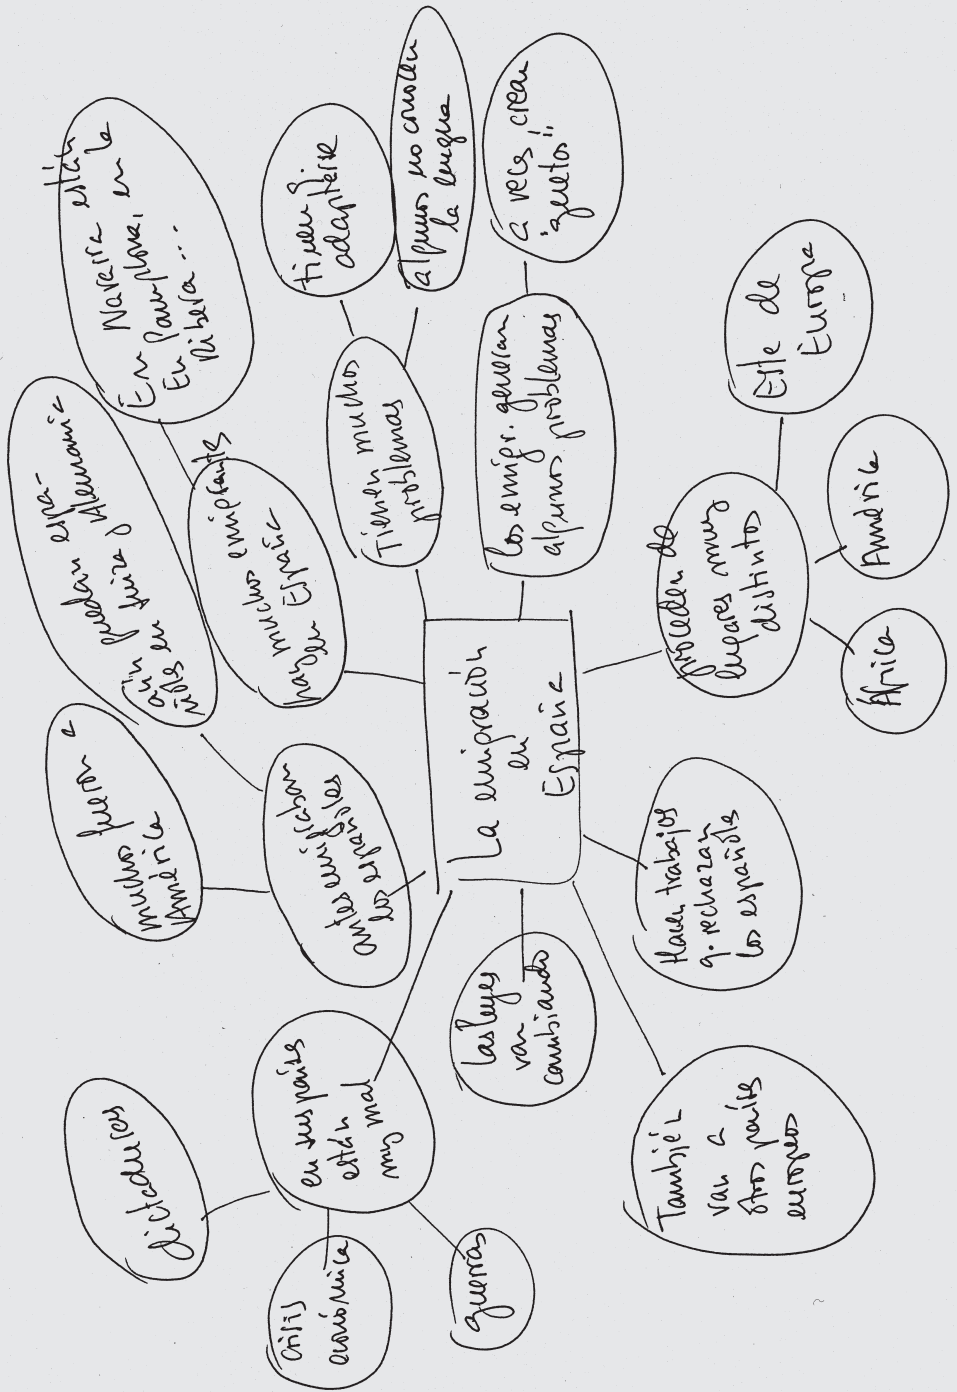 La emigración
en
España
antes emigraban
los españoles
muchos fueron a
América
aún quedan espa-
ñoles en Suiza y Alemania
hay muchos emigrantes
en España
En Navarra están
En Pamplona, en la
Ribera...
Tienen muchos
problemas
tienen q.
adaptarse
algunos no conocen
la lengua
los emigr. generan
algunos problemas
a veces crean
"guetos"
proceden de
lugares muy
distintos
Este de
Europa
América
África
Hacen trabajos
q. rechazan
los españoles
También
van a
otros países
europeos
las leyes
van
cambiando
en sus países
están
muy mal
dictaduras
crisis
económica
guerras